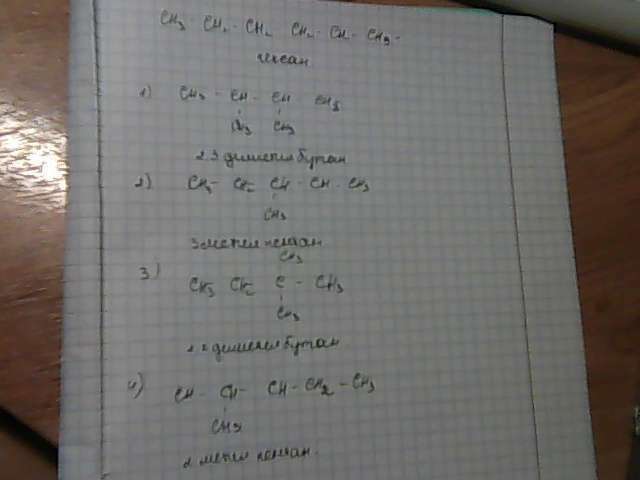 CH3 CH2 - CH2 CH2 - CH - CH3 -
гексан
1) CH3 - CH - CH CH3
CH3 CH3
2 3 диметил бутан
2) CH3 - CH2 CH - CH - CH3
CH3
3 метил пентан
CH3
3) CH3 CH2 C - CH3
CH3
2 2 диметил бутан
4) CH - CH - CH - CH2 - CH3
CH3
2 метил пентан.